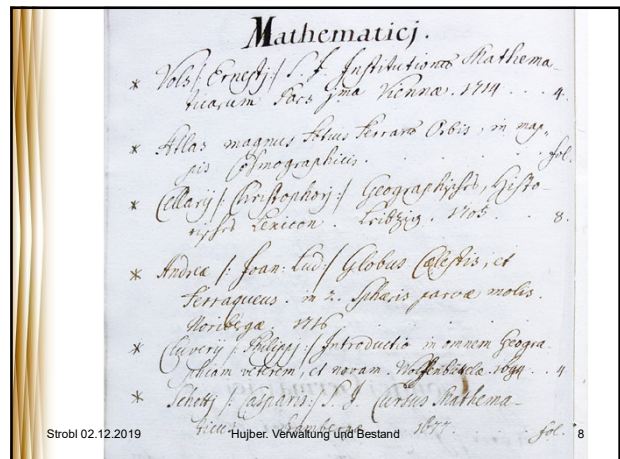 Mathematicj.
* Vols /: Ernestj :/ S. J. Institutiones Mathema-
ticarum Pars jma Viennæ. 1714 . . . 4.
* Atlas magnus totius Terrarū Orbis, in map,
pis Cosmographicis. . . . . fol.
* Cellarij /: Christophorj :/ Geographisches, Histo-
risches Lexicon. Leibzig. 1705. . . 8.
* Andreæ /: Joan: Lud: / Globus Cælestis, et
Terraqueus. in 2. Sphæris parvæ molis.
Noribergæ 1716 . . . .
* Cluverij /: Philippj :/ Introductio in omnem Geogra-
phiam veterem, et novam. Wolfenbutelæ. 1694 . . 4
* Schottj /: Casparis :/ S. J. Cursus Mathema-
ticus. Bambergæ 1677 . . . fol.
Strobl 02.12.2019 Hujber. Verwaltung und Bestand 8